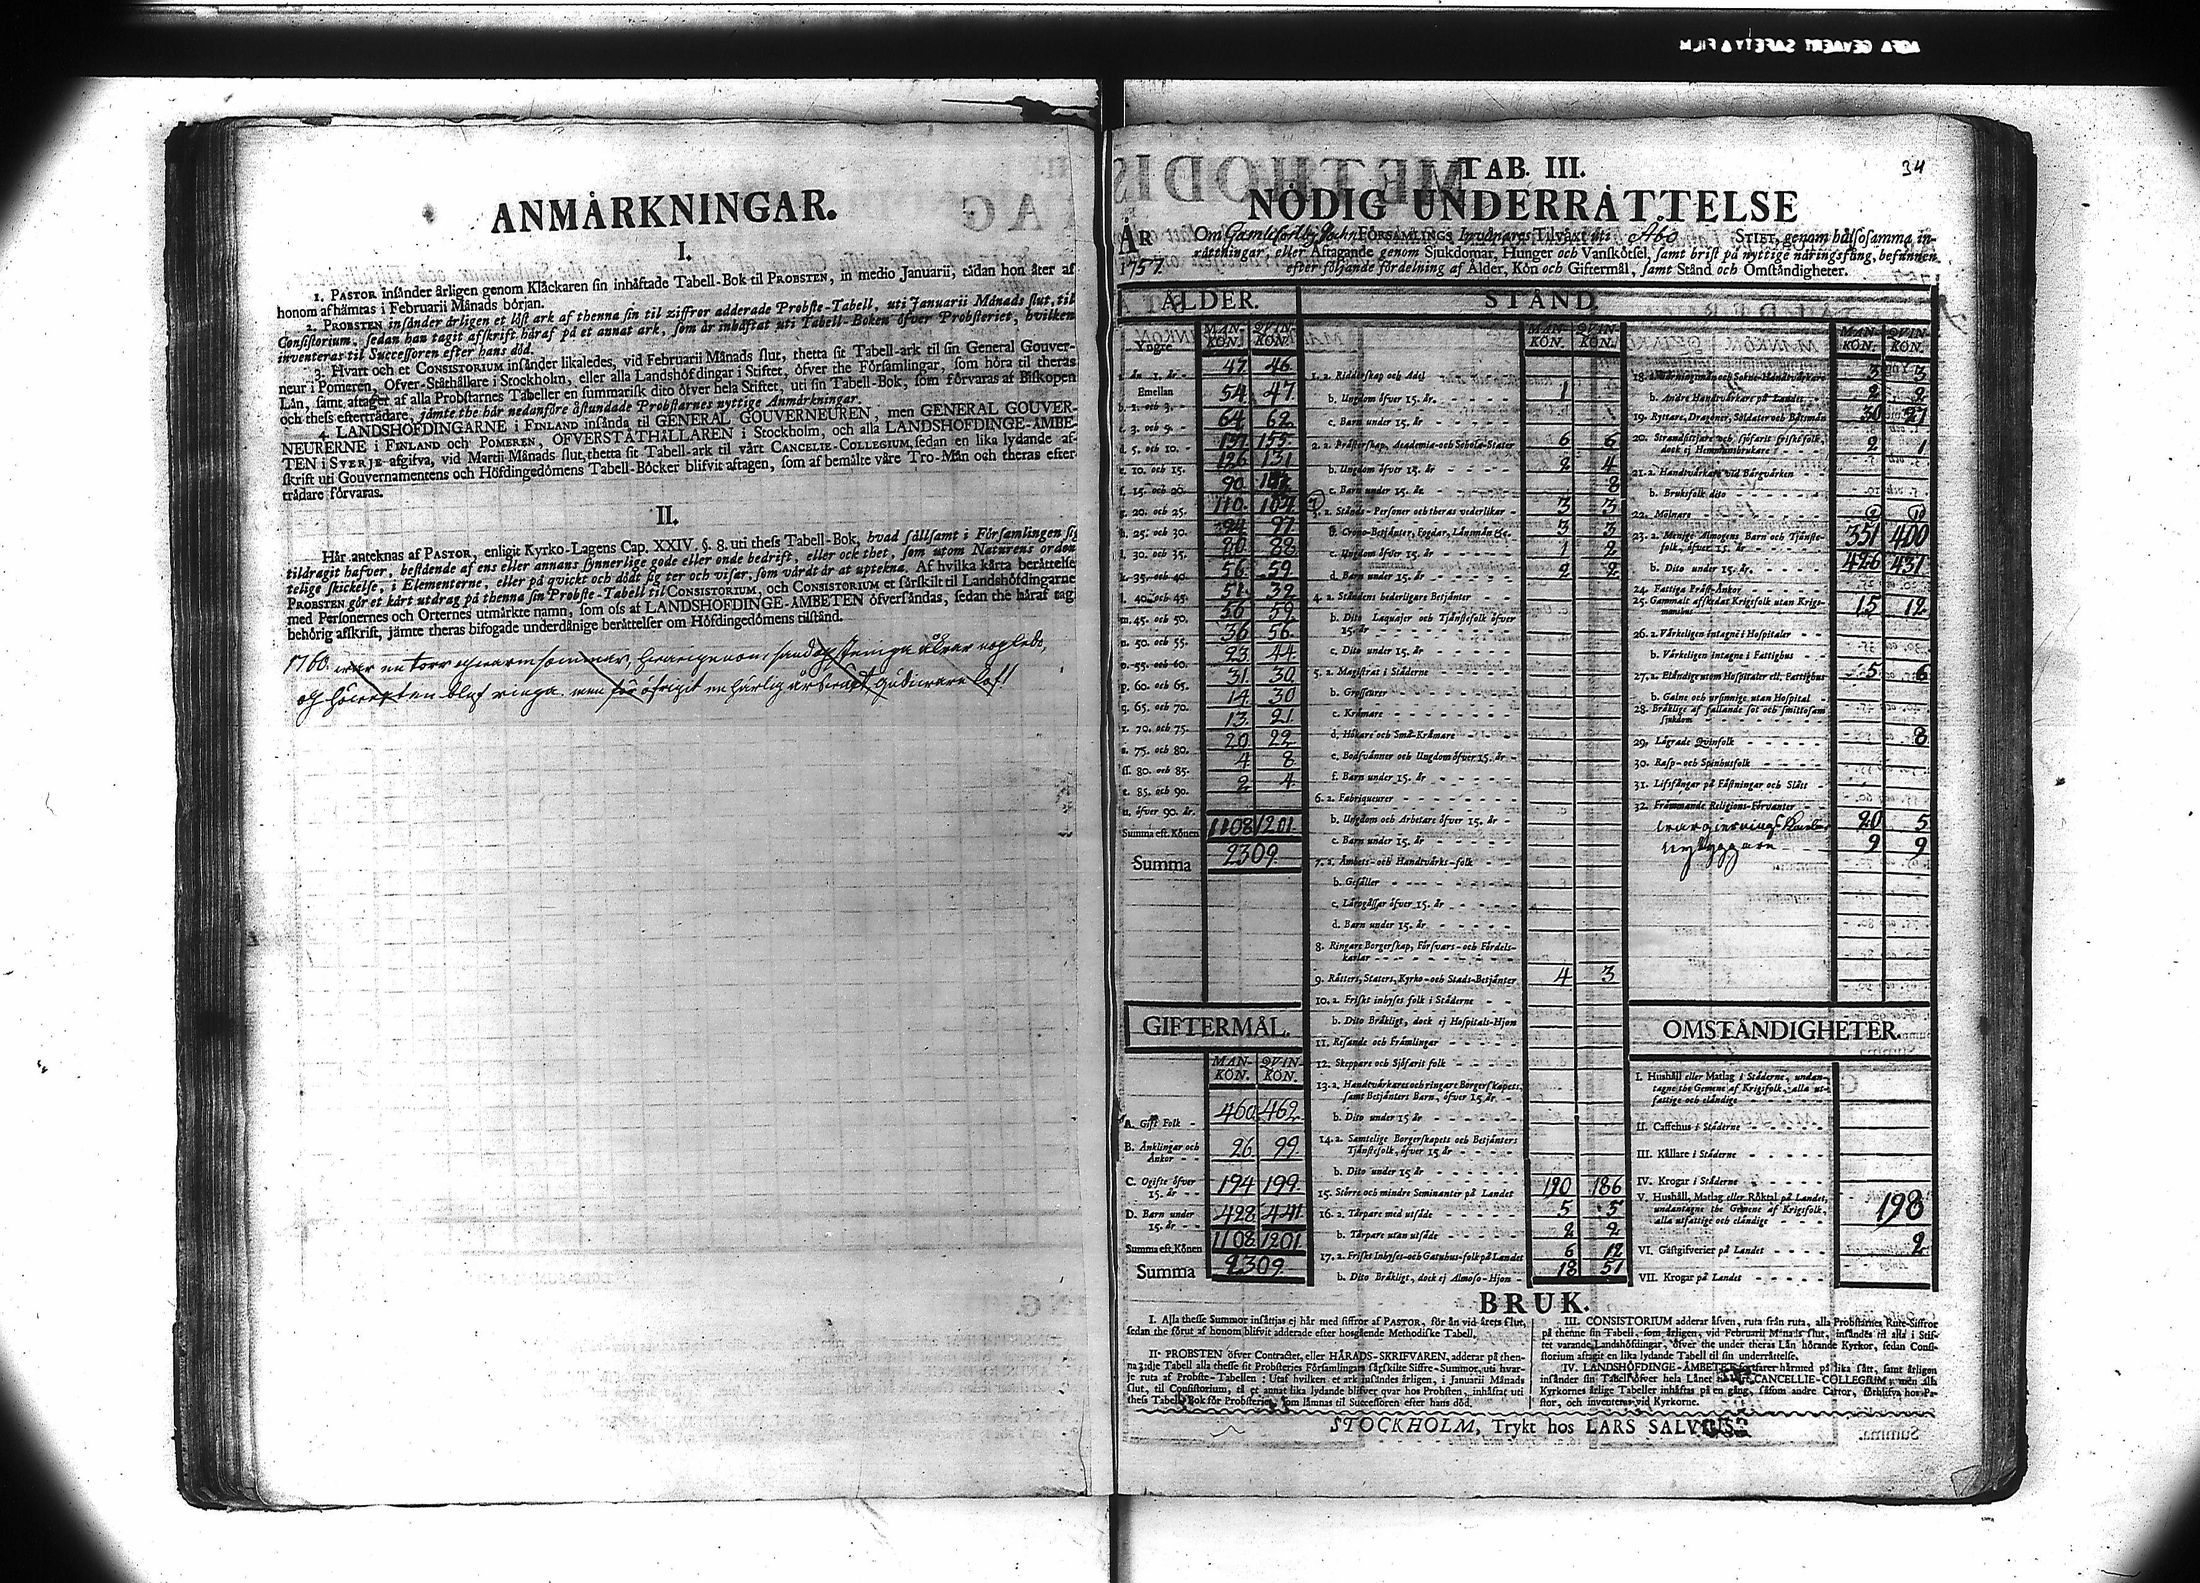 ANMÄRKNINGAR.
I.
1. PASTOR insänder årligen genom Klåckaren sin inhäftade Tabell-Bok til PROBSTEN, in medio Januarii, tådan hon åter af
honom afhämtas i Februarii Månads början.
2. PROBSTEN insänder årligen et låst ark af thenna sin til ziffror adderade Probste-Tabell, uti Januarii Månads slut, til
Consistorium, sedan han tagit afskrift häraf på et annat ark, som är inhäftat uti Tabell-Boken öfver Probsteriet, hvilken
inventeras til Successoren efter hans död.
3. Hvart och et CONSISTORIUM insänder likaledes, vid Februarii Månads slut, thetta sit Tabell-ark til sin General Gouver-
neur i Pomeren, Öfver-Ståthållare i Stockholm, eller alla Landshöfdingar i Stiftet, öfver the Församlingar, som höra til theras
Län, samt aftager af alla Probstarnes Tabeller en summarisk dito öfver hela Stiftet, uti sin Tabell-Bok, som förvaras af Biskopen
och thess efterträdare, jämte the här nedanföre åstundade Probstarnes nyttige Anmärkningar.
4. LANDSHÖFDINGARNE i FINLAND insända til GENERAL GOUVERNEUREN, men GENERAL GOUVER-
NEURERNE i FINLAND och POMEREN, ÖFVERSTÅTHÅLLAREN i Stockholm, och alla LANDSHÖFDINGE-ÄMBE-
TEN i SVERJE afgifva, vid Martii Månads slut, thetta sit Tabell-ark til vårt CANCELIE-COLLEGIUM, sedan en lika lydande af-
skrift uti Gouvernamentens och Höfdingedömens Tabell-Böcker blifvit aftagen, som af bemälte våre Tro-Män och theras efter-
trädare förvaras.
II.
Här anteknas af PASTOR, enligit Kyrko-Lagens Cap. XXIV. §. 8. uti thess Tabell-Bok, hvad sällsamt i Församlingen sig
tildragit hafver, bestående af ens eller annans synnerlige gode eller onde bedrift, eller ock thet, som utom Naturens orden
telige skickelse, i Elementerne, eller på qvickt och dödt sig ter och visar, som värdt är at uptekna. Af hvilka kårta berättelse
PROBSTEN gör et kårt utdrag på thenna sin Probste-Tabell til CONSISTORIUM, och CONSISTORIUM et särskilt til Landshöfdingarne
med Personernes och Orternes utmärkte namn, som oss af LANDSHÖFDINGE-ÄMBETEN öfversändas, sedan the häraf tag
behörig afskrift, jämte theras bifogade underdånige berättelser om Höfdingedömens tillstånd.
1760. war en torr och warm sommar,
34
TAB. III.
NÖDIG UNDERRÄTTELSE
ÅR 1757.
Om Gamlecarlby Sochn FÖRSAMLINGS Invånares Tilväxt uti Åbo STIFT, genom hälsosamma in-
rättningar, eller Aftagande genom Sjukdomar, Hunger och Vanskötsel, samt brist på nyttige näringsfång, befunnen
efter följande fördelning af Ålder, Kön och Giftermål, samt Stånd och Omständigheter.
ÅLDER.
MAN-KÖN. QVIN-KÖN.
Yngre
än 1. år - 47 46
Emellan
b. 1. och 3. - 54 47
c. 3. och 5. - 64 62
d. 5. och 10. - 137 155
e. 10. och 15. 126 131
f. 15. och 20. 90
g. 20. och 25. 110 104
h. 25. och 30. 97
i. 30. och 35. 80 88
k. 35. och 40. 56 59
l. 40. och 45. 51 32
m. 45. och 50. 56 59
n. 50. och 55. 36 56
o. 55. och 60. 23 44
p. 60. och 65. 31 30
q. 65. och 70. 14 30
r. 70. och 75. 13 21
s. 75. och 80. 20 22
ss. 80. och 85. 4 8
t. 85. och 90. 2 4
u. öfver 90. år.
Summa eft. Könen 1108 1201
Summa 2309
GIFTERMÅL.
MAN-KÖN. QVIN-KÖN.
A. Gift Folk - 460 462
B. Änklingar och Änkor - - 26 99
C. Ogifte öfver 15. år - - 194 199
D. Barn under 15. år - - 428 441
Summa eft. Könen 1108 1201
Summa 2309
STÅND
MAN-KÖN. QVIN-KÖN.
1. a. Ridderskap och Adel
b. Ungdom öfver 15. år. 1
c. Barn under 15. år
2. a. Prästerskap, Academiæ-och Schola-Stater 6 6
b. Ungdom öfver 15. år 2 4
c. Barn under 15. år 8
3. a. Stånds-Personer och theras vederlikar - 3 3
b. Crono-Betjänter, Fogdar, Länsmän &c. 3 3
c. Ungdom öfver 15. år 1 2
d. Barn under 15. år 2 2
4. a. Ståndens hederligare Betjänter
b. Dito Laquajer och Tjänstefolk öfver 15. år
c. Dito under 15. år
5. a. Magistrat i Städerne
b. Grosseurer
c. Krämare
d. Hökare och Små-Krämare
e. Bodsvänner och Ungdom öfver 15. år
f. Barn under 15. år
6. a. Fabriqueurer
b. Ungdom och Arbetare öfver 15. år
c. Barn under 15. år
7. a. Ämbets-och Handtvärks-folk
b. Gesäller
c. Lärogåssar öfver 15. år
d. Barn under 15. år
8. Ringare Borgerskap, Försvars-och Fördels-karlar
9. Rätters, Staters, Kyrko-och Stads-Betjänter 4 3
10. a. Friskt inhyses folk i Städerne
b. Dito Bräkligt, dock ej Hospitals-Hjon
11. Resande och Främlingar
12. Skeppare och Sjöfarit folk
13. a. Handtvärkares och ringare Borgerskapets, samt Betjänters Barn, öfver 15. år
b. Dito under 15 år
14. a. Samtelige Borgerskapets och Betjänters Tjänstefolk, öfver 15 år
b. Dito under 15 år
15. Större och mindre Seminanter på Landet 190 186
16. a. Torpare med utsäde 5 5
b. Torpare utan utsäde 2 2
17. a. Friskt Inhyses-och Gatuhus-folk på Landet 6 12
b. Dito Bräkligt, dock ej Almoso-Hjon - 18 51
MAN-KÖN. QVIN-KÖN.
18. a. Gärningsmän och Sokne-Handtvärkare 3 3
b. Andre Handtvärkare på Landet 2 2
19. Ryttare, Dragoner, Soldater och Båtsmän 30 27
20. Strandsittjare och sjöfarit friskt folk, dock ej Hemmansbrukare 2 1
21. a. Handtvärkare vid Bärgvärken
b. Bruksfolk dito
22. Mölnare
23. a. Menige Almogens Barn och Tjänste-folk, öfver 15. år 351 400
b. Dito under 15. år. 426 431
24. Fattiga Präst-Änkor
25. Gammalt afskedat Krigsfolk utan Krigs-mantal 15 12
26. a. Värkeligen intagne i Hospitaler
b. Värkeligen intagne i Fattighus
27. a. Eländige utom Hospitaler ell. Fattighus 5 6
b. Galne och ursinnige utan Hospital
28. Bräklige af fallande sot och smittosam sjukdom
29. Lägrade Qvinfolk 8
30. Rasp- och Spinhusfolk
31. Lifsfångar på Fästningar och Slått
32. Främmande Religions-Förvanter
20 5
Nybyggare 9 9
OMSTÄNDIGHETER.
I. Hushåll eller Matlag i Städerne, undan-
tagne the Gemene af Krigsfolk, alla ut-
fattige och eländige
II. Caffehus i Städerne
III. Källare i Städerne
IV. Krogar i Städerne
V. Hushåll, Matlag eller Röktal på Landet,
undantagne the Gemene af Krigsfolk,
alla utfattige och eländige 198
VI. Gästgifverier på Landet 2
VII. Krogar på Landet
BRUK.
I. Alla thesse Summor insättjas ej här med siffror af PASTOR, för än vid årets slut,
sedan the förut af honom blifvit adderade efter hosgående Methodiske Tabell.
II. PROBSTEN öfver Contractet, eller HÄRADS-SKRIFVAREN, adderar på then-
na 3:dje Tabell alla thesse sit Probsteries Församlingars särskilte Siffre-Summor, uti hvar-
je ruta af Probste-Tabellen: Utaf hvilken et ark insändes årligen, i Januarii Månads
slut, til Consistorium, til et annat lika lydande blifver qvar hos Probsten, inhäftat uti
thess Tabell-Bok för Probsteriet, som lämnas til Successoren efter hans död.
III. CONSISTORIUM adderar äfven, ruta från ruta, alla Probstarnes Rute-Siffror
på thenne sin Tabell, som årligen, vid Februarii Månads slut, insändes til alla i Stif-
tet varande Landshöfdingar, öfver the under theras Län hörande Kyrkor, sedan Consi-
storium aftagit en lika lydande Tabell til sin underrättelse.
IV. LANDSHÖFDINGE-ÄMBETET fortfarer härmed på lika sätt, samt årligen
insänder sin Tabell öfver hela Länet CANCELLIE-COLLEGIUM; men alla
Kyrkornes årlige Tabeller inhäftas på en gång, såsom andre Cartor, förblifva hos Pa-
stor, och inventeras vid Kyrkorne.
STOCKHOLM, Trykt hos LARS SALVIUS.